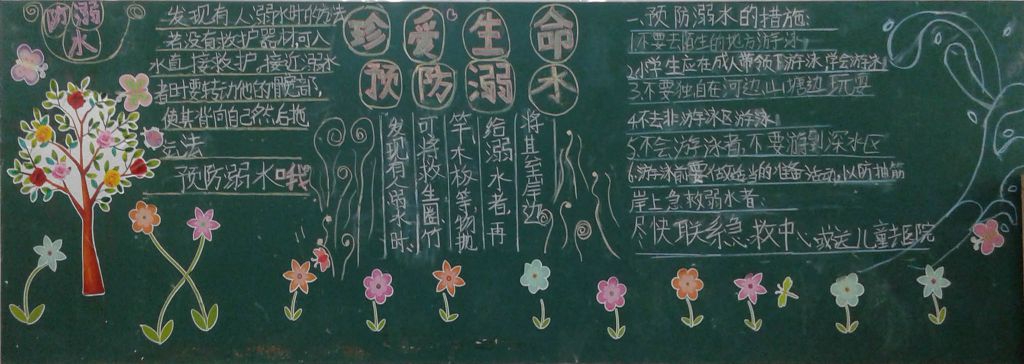 防溺
水
发现有人溺水时的方法
若没有救护器材,可入
水直接救护。接近溺水
者时要转动他的髋部,
使其背向自己然后拖
运法
预防溺水哦
珍爱生命
预防溺水
发现有人溺水时,
可将救生圈竹
竿木板等物抛
给溺水者,再
将其至岸边
一、预防溺水的措施:
1.不要去陌生的地方游泳
2.小学生应在成人带领下游泳,学会游泳
3.不要独自在河边、山塘边玩耍
4.不去非游泳区游泳
5.不会游泳者,不要游到深水区
6.游泳前要做适当的准备活动,以防抽筋
岸上急救溺水者:
尽快联系急救中心或送儿童去医院